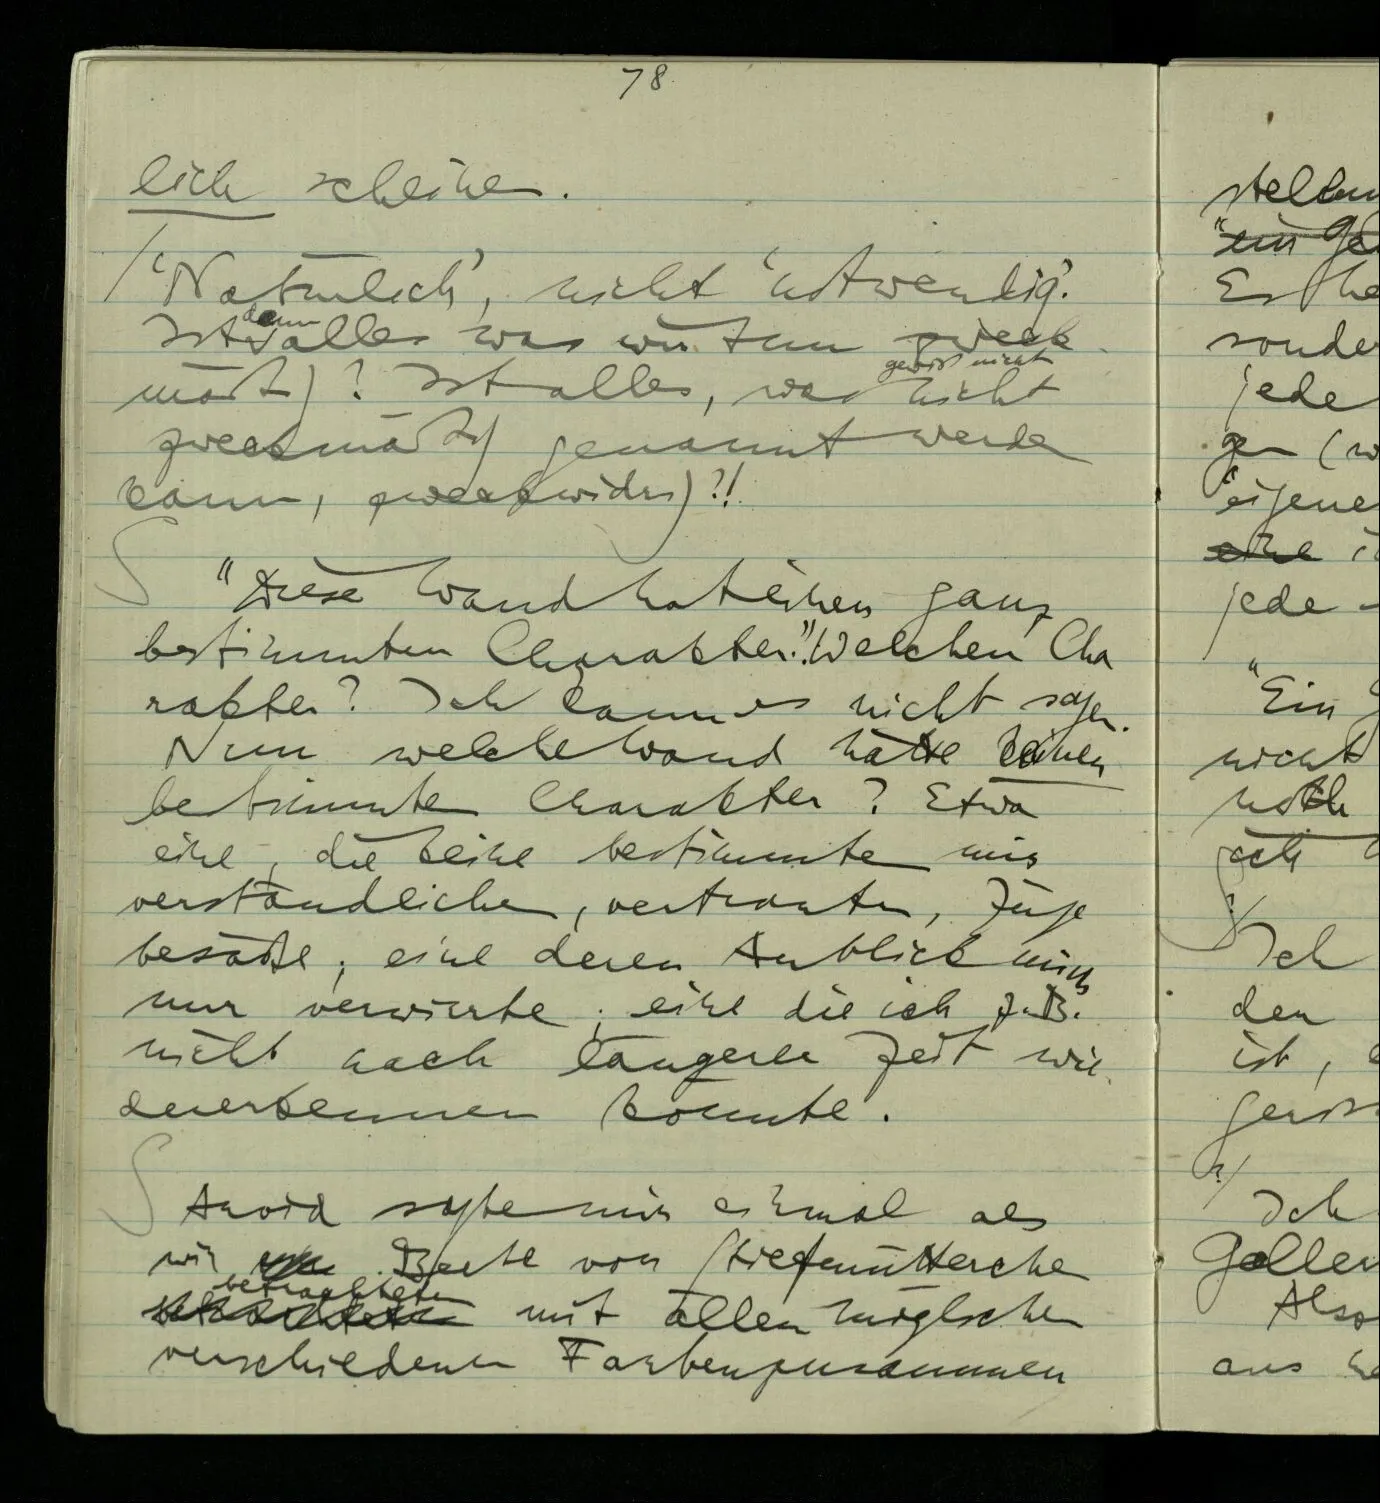 78
lich scheinen.
/ 'Natürlich', nicht 'notwendig'.
denn
Ist alles was wir tun zweck
mäßig? Ist alles, was nicht
gewiß nicht
zweckmäßig genannt werden
kann, zweckwidrig?!
"Diese Wand hat einen ganz
bestimmten Charakter." Welchen Cha
rakter? Ich kann es nicht sagen.
Nun welche Wand hätte keinen
bestimmten Charakter? Etwa
eine, die keine bestimmten mir
verständlichen, vertrauten, Züge
besäße; eine deren Anblick mich
nur verwirrte; eine die ich z.B.
nicht nach längerer Zeit wie
dererkennen konnte.
Arvid sagte mir einmal als
wir Beete von Stiefmütterchen
betrachteten
mit allen möglichen
verschiedenen Farbenzusammen
stellun
"ein Ge
Es
sonder
jede
gen (w
eigene
eine
jede
"Ein
nicht
noch
Ich
den
ist,
?/
Ich
Also
aus